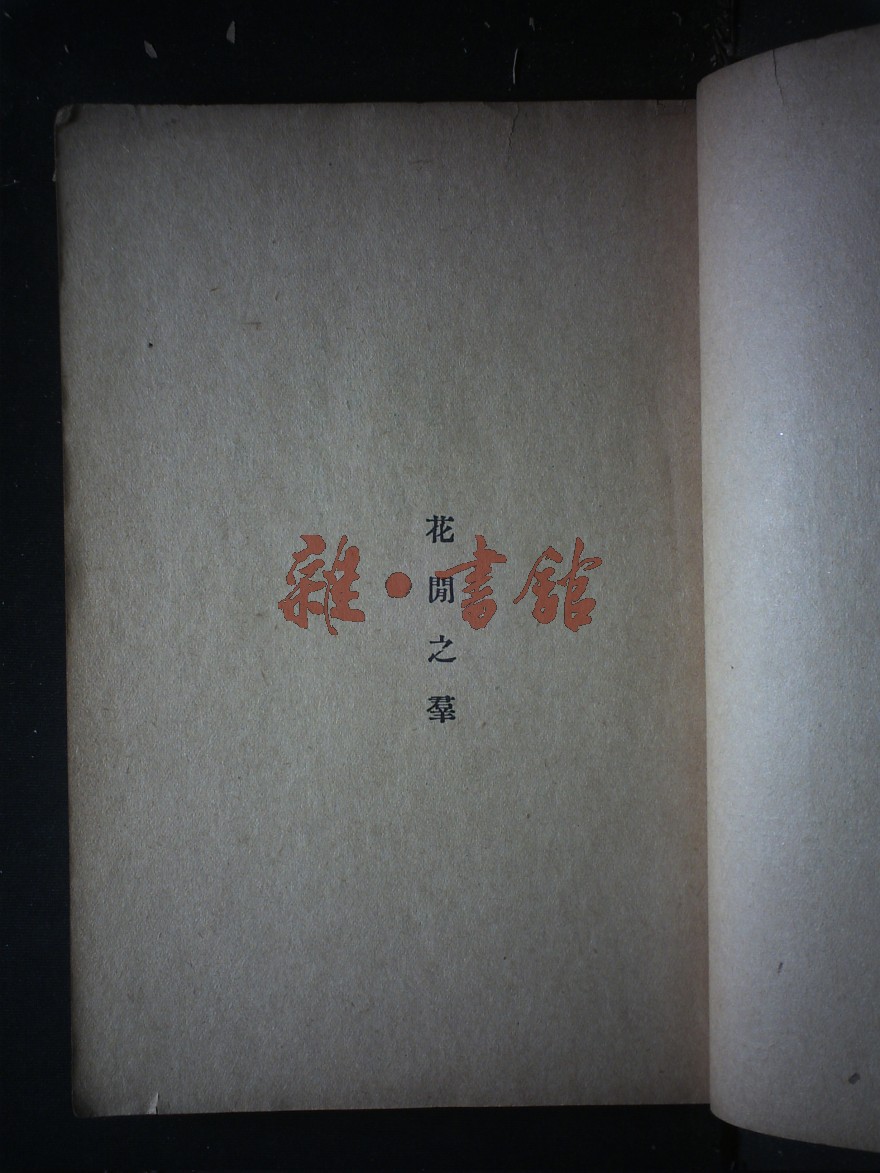 花閒之羣
雜•書館